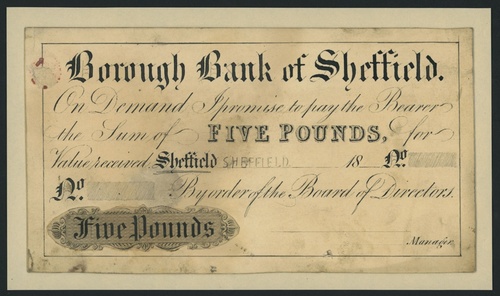 Borough Bank of Sheffield.
On Demand I promise to pay the Bearer
the Sum of FIVE POUNDS, for
Value received Sheffield SHEFFIELD 18 No.
No. By order of the Board of Directors.
Five Pounds
Manager.